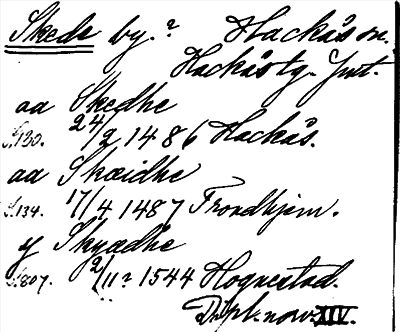 Skede by.? Hackås sn.
Hackås tg. Jmt.
aa Skedhe
S.130. 24/2 1486 Hackås.
aa Skæidhe
S.134. 17/4 1487 Trondhjem.
y Skyædhe
S.807. 2/11? 1544 Hognestad.
Dipl. norv. XIV.